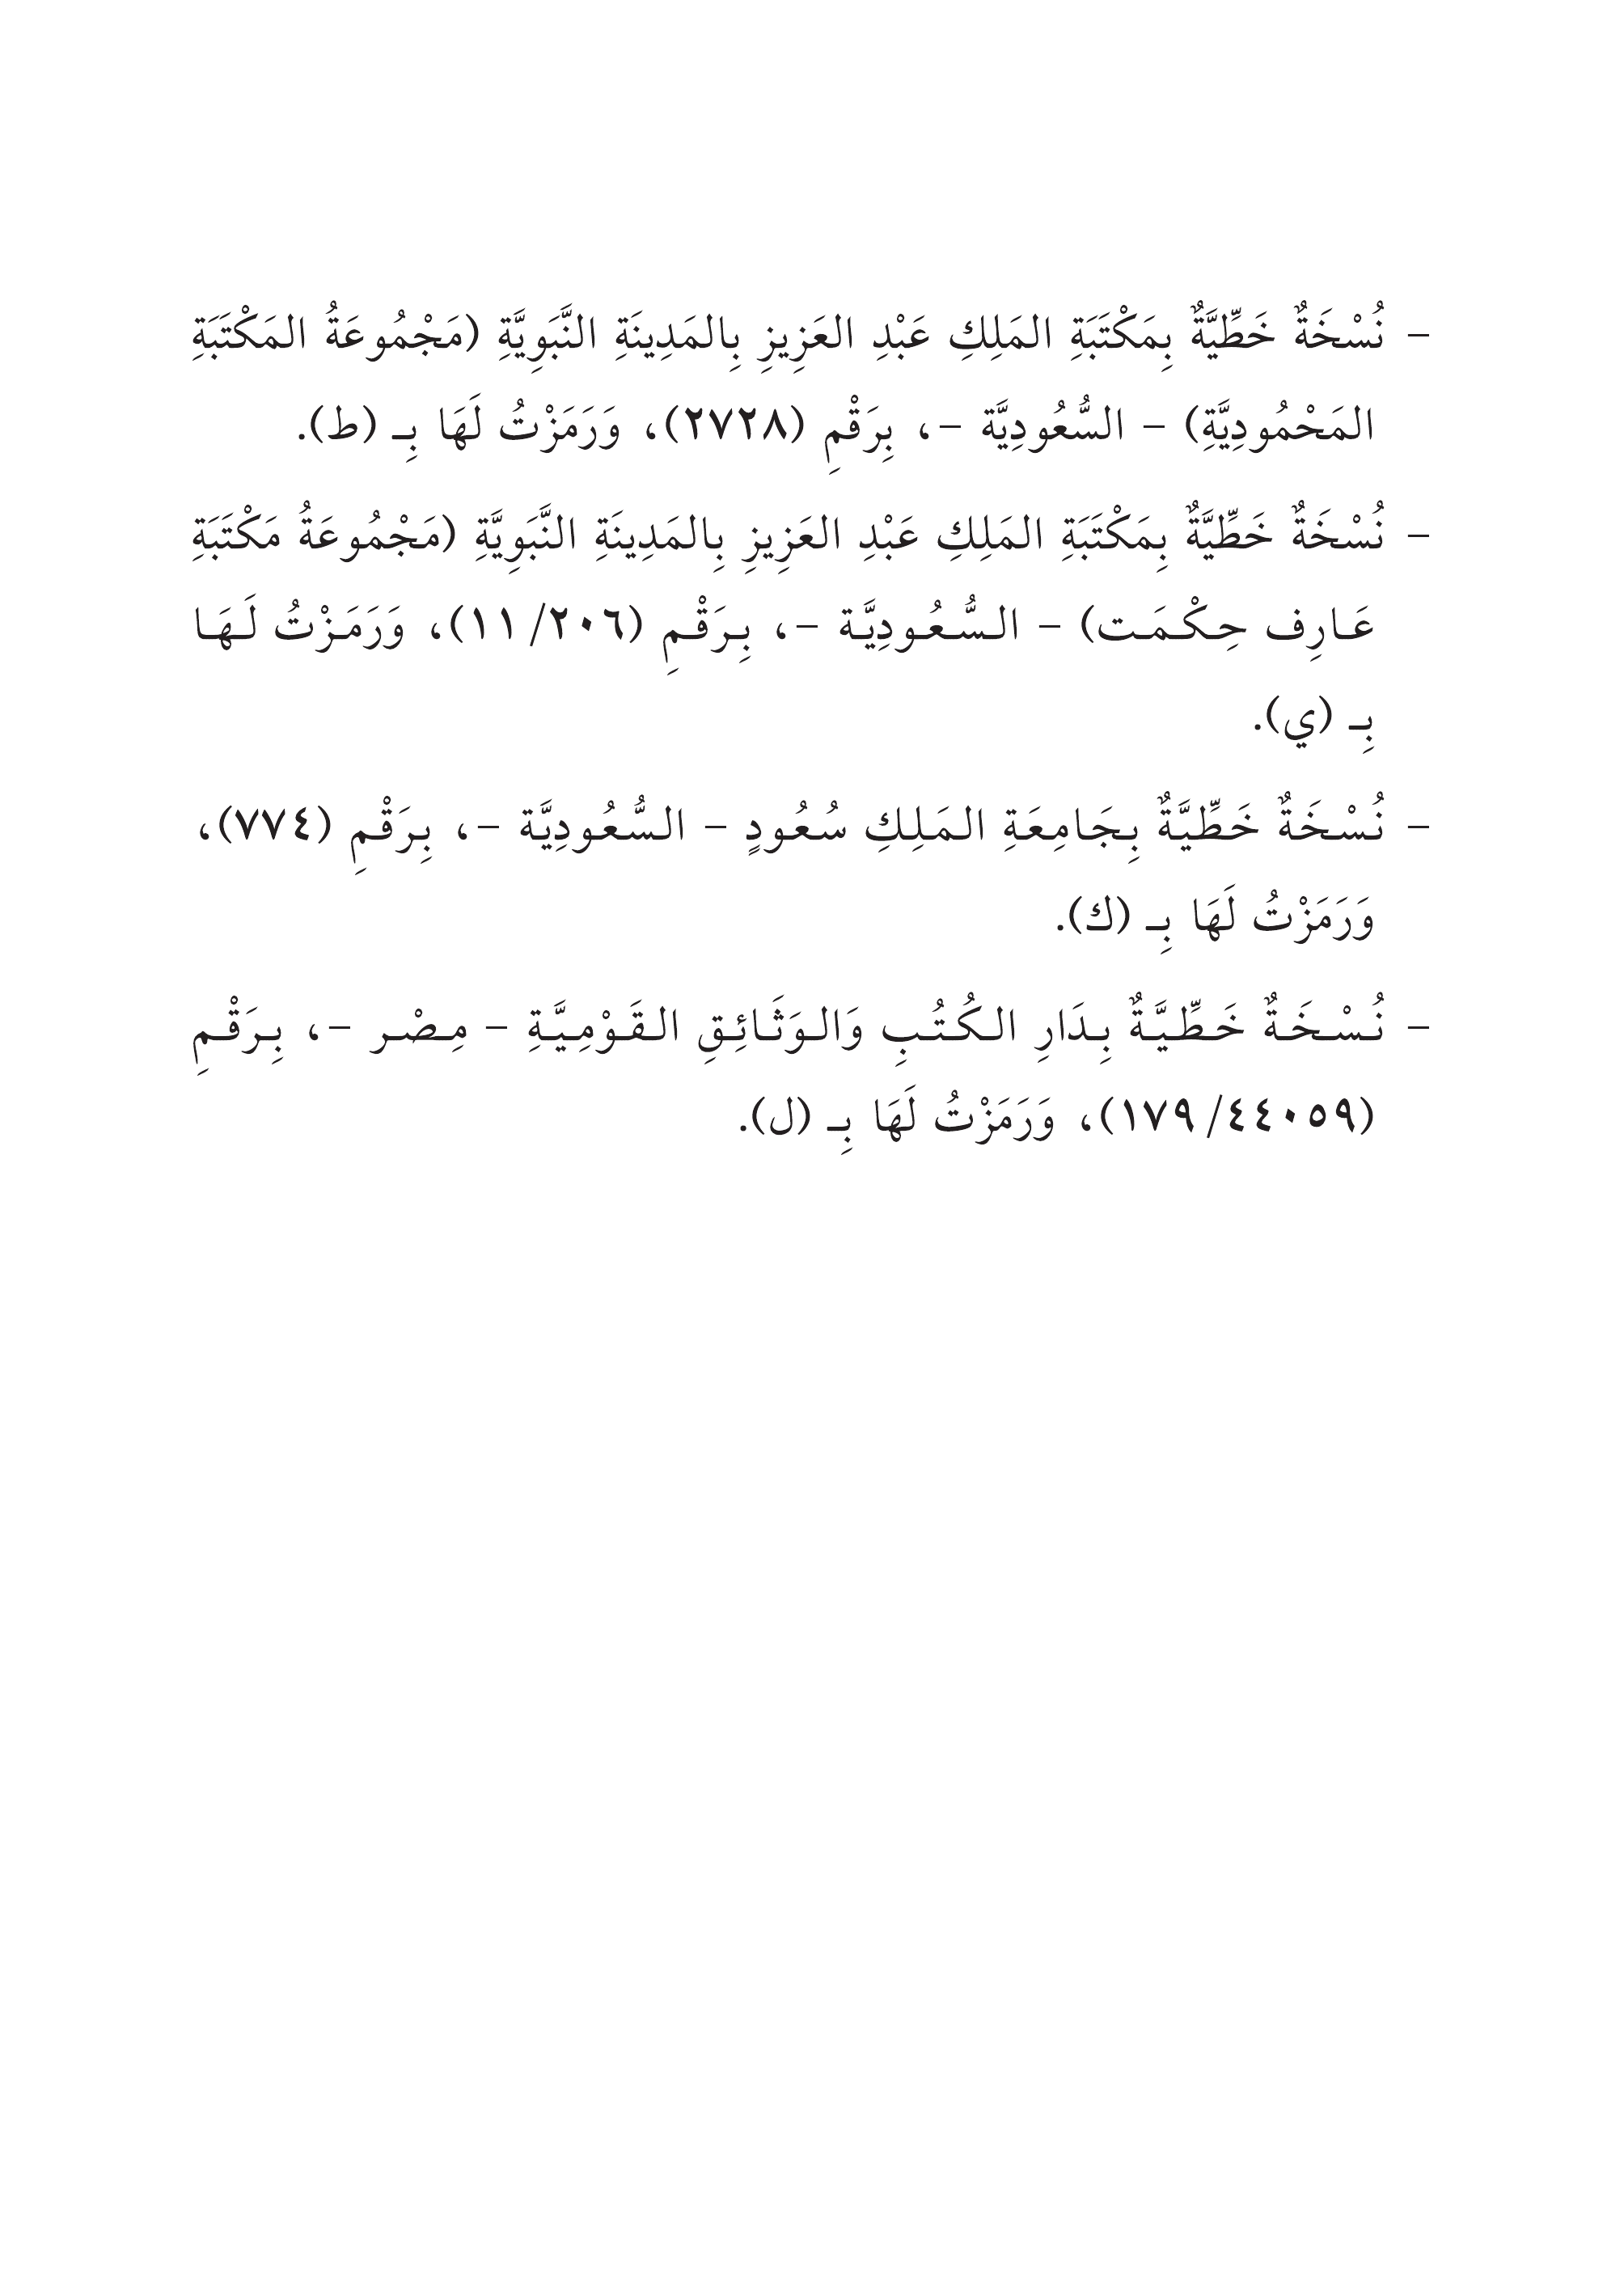 - نُسْخَةٌ خَطِّيَّةٌ بِمَكْتَبَةِ المَلِكِ عَبْدِ العَزِيزِ بِالمَدِينَةِ النَّبَوِيَّةِ (مَجْمُوعَةُ المَكْتَبَةِ
المَحْمُودِيَّةِ) - السُّعُودِيَّة -، بِرَقْمِ (٢٧٢٨)، وَرَمَزْتُ لَهَا بِـ (ط).
- نُسْخَةٌ خَطِّيَّةٌ بِمَكْتَبَةِ المَلِكِ عَبْدِ العَزِيزِ بِالمَدِينَةِ النَّبَوِيَّةِ (مَجْمُوعَةُ مَكْتَبَةِ
عَارِف حِكْمَت) - السُّعُودِيَّة -، بِرَقْمِ (١١/٢٠٦)، وَرَمَزْتُ لَهَا
بِـ (ي).
- نُسْخَةٌ خَطِّيَّةٌ بِجَامِعَةِ المَلِكِ سُعُودٍ - السُّعُودِيَّة -، بِرَقْمِ (٧٧٤)،
وَرَمَزْتُ لَهَا بِـ (ك).
- نُسْخَةٌ خَطِّيَّةٌ بِدَارِ الكُتُبِ وَالوَثَائِقِ القَوْمِيَّةِ - مِصْر -، بِرَقْمِ
(١٧٩/٤٤٠٥٩)، وَرَمَزْتُ لَهَا بِـ (ل).